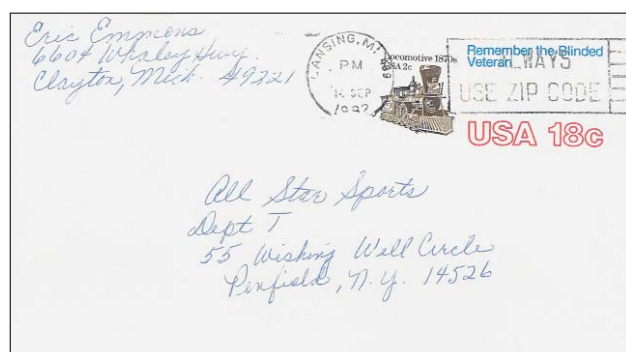 Eric Emmons
6604 Whaley Hwy.
Clayton, Mich. 49221
LANSING, MI
PM
SEP
1987
Locomotive 1870s
USA 2c
Remember the Blinded
Veteran
ALWAYS
USE ZIP CODE
USA 18c
All Star Sports
Dept T
55 Wishing Well Circle
Penfield, N.Y. 14526